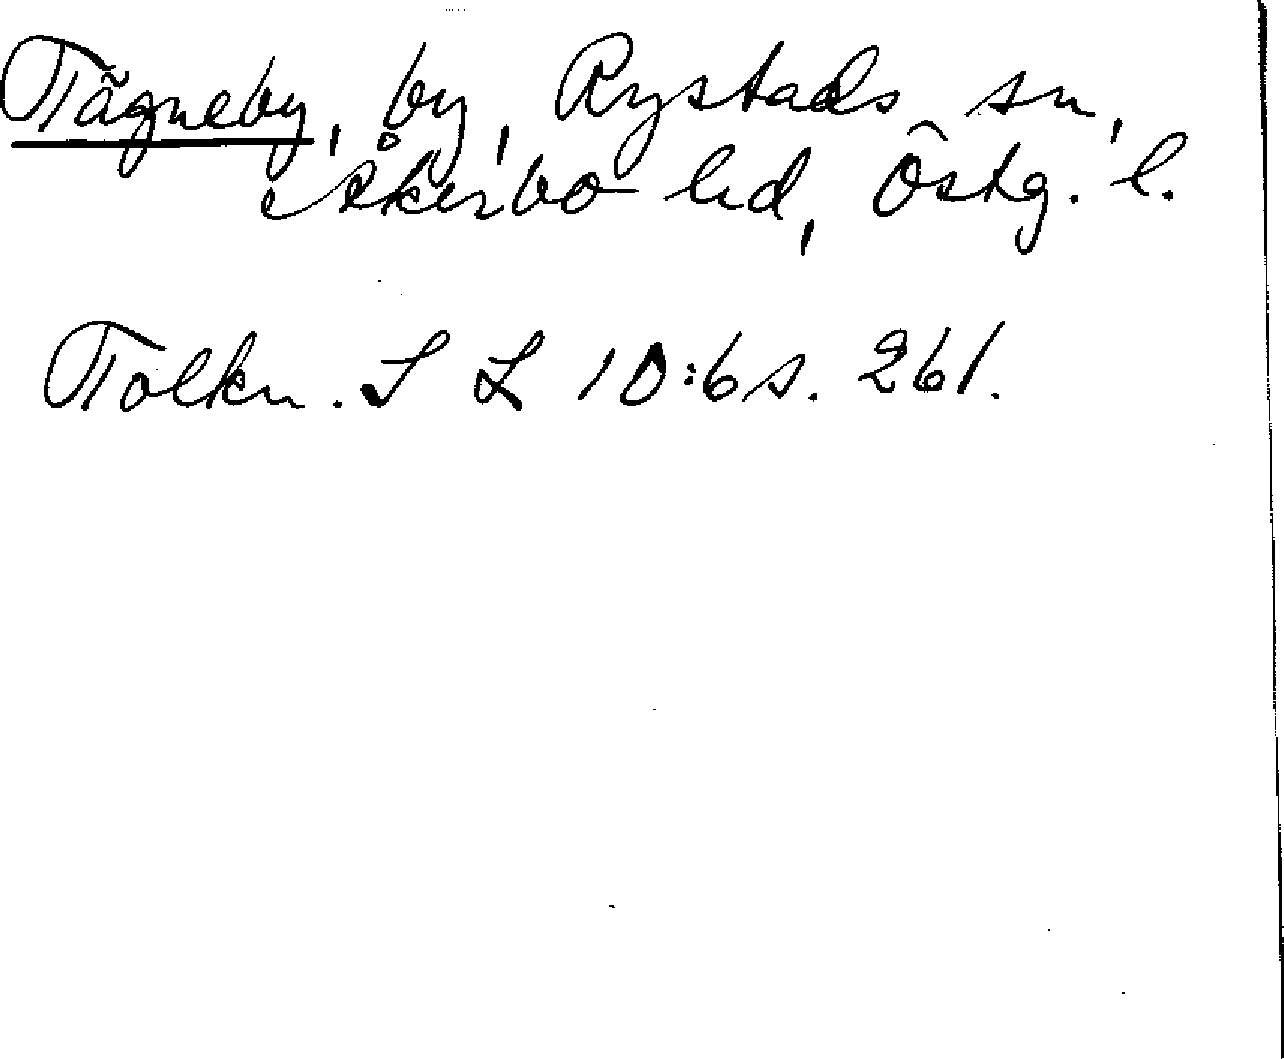 Tägneby, by, Rystads sn,
Åkerbo hd, Östg. l.
Tolkn. S L 10:6 s. 261.